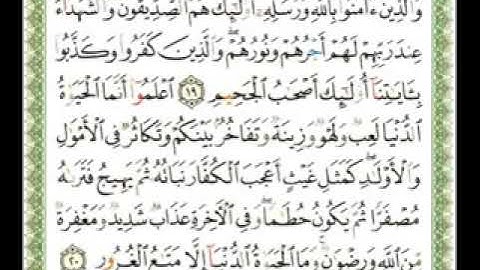 وَالَّذِينَ ءَامَنُوا۟ بِاللَّهِ وَرُسُلِهِۦٓ أُو۟لَٰٓئِكَ هُمُ الصِّدِّيقُونَ وَالشُّهَدَآءُ
عِندَ رَبِّهِمْ لَهُمْ أَجْرُهُمْ وَنُورُهُمْ وَالَّذِينَ كَفَرُوا۟ وَكَذَّبُوا۟
بِـَٔايَٰتِنَآ أُو۟لَٰٓئِكَ أَصْحَٰبُ الْجَحِيمِ ١٩ اعْلَمُوٓا۟ أَنَّمَا الْحَيَوٰةُ
الدُّنْيَا لَعِبٌ وَلَهْوٌ وَزِينَةٌ وَتَفَاخُرٌۢ بَيْنَكُمْ وَتَكَاثُرٌ فِى الْأَمْوَٰلِ
وَالْأَوْلَٰدِ كَمَثَلِ غَيْثٍ أَعْجَبَ الْكُفَّارَ نَبَاتُهُۥ ثُمَّ يَهِيجُ فَتَرَىٰهُ
مُصْفَرًّا ثُمَّ يَكُونُ حُطَٰمًا وَفِى الْءَاخِرَةِ عَذَابٌ شَدِيدٌ وَمَغْفِرَةٌ
مِّنَ اللَّهِ وَرِضْوَٰنٌ وَمَا الْحَيَوٰةُ الدُّنْيَآ إِلَّا مَتَٰعُ الْغُرُورِ ٢٠